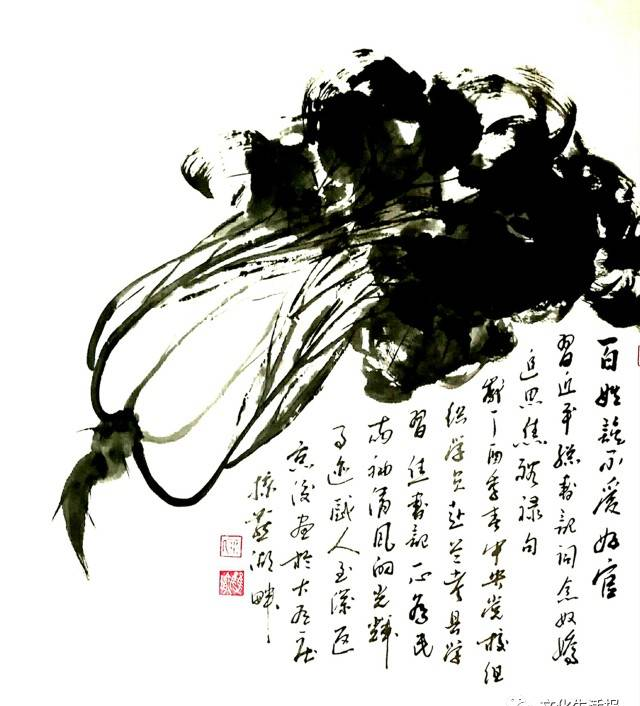 百姓谁不爱好官
习近平总书记词念奴娇
追思焦裕禄句
丁酉季春中央党校组
织学员赴兰考县学
习焦书记一心为民
两袖清风的光辉
事迹感人至深返
京后画于大有庄
掠燕湖畔
文化生活报